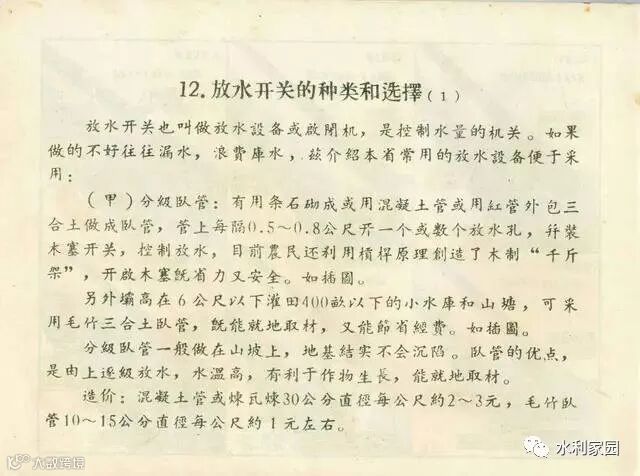 12.放水开关的种类和选擇(1)
放水开关也叫做放水設备或啟閉机，是控制水量的机关。如果
做的不好往往漏水，浪費庫水，茲介紹本省常用的放水設备便于采
用：
(甲)分級臥管：有用条石砌成或用混凝土管或用紅管外包三
合土做成臥管，管上每隔0.5～0.8公尺开一个或数个放水孔，幷裝
木塞开关，控制放水，目前農民还利用槓桿原理創造了木制“千斤
架”，开啟木塞旣省力又安全。如插圖。
另外壩高在6公尺以下灌田400畝以下的小水庫和山塘，可采
用毛竹三合土臥管，旣能就地取材，又能節省經費。如插圖。
分級臥管一般做在山坡上，地基結实不会沉陷。臥管的优点，
是由上逐級放水，水温高，有利于作物生長，能就地取材。
造价：混凝土管或煉瓦煉30公分直徑每公尺約2～3元，毛竹臥
管10～15公分直徑每公尺約1元左右。
大数跨境
水利家园